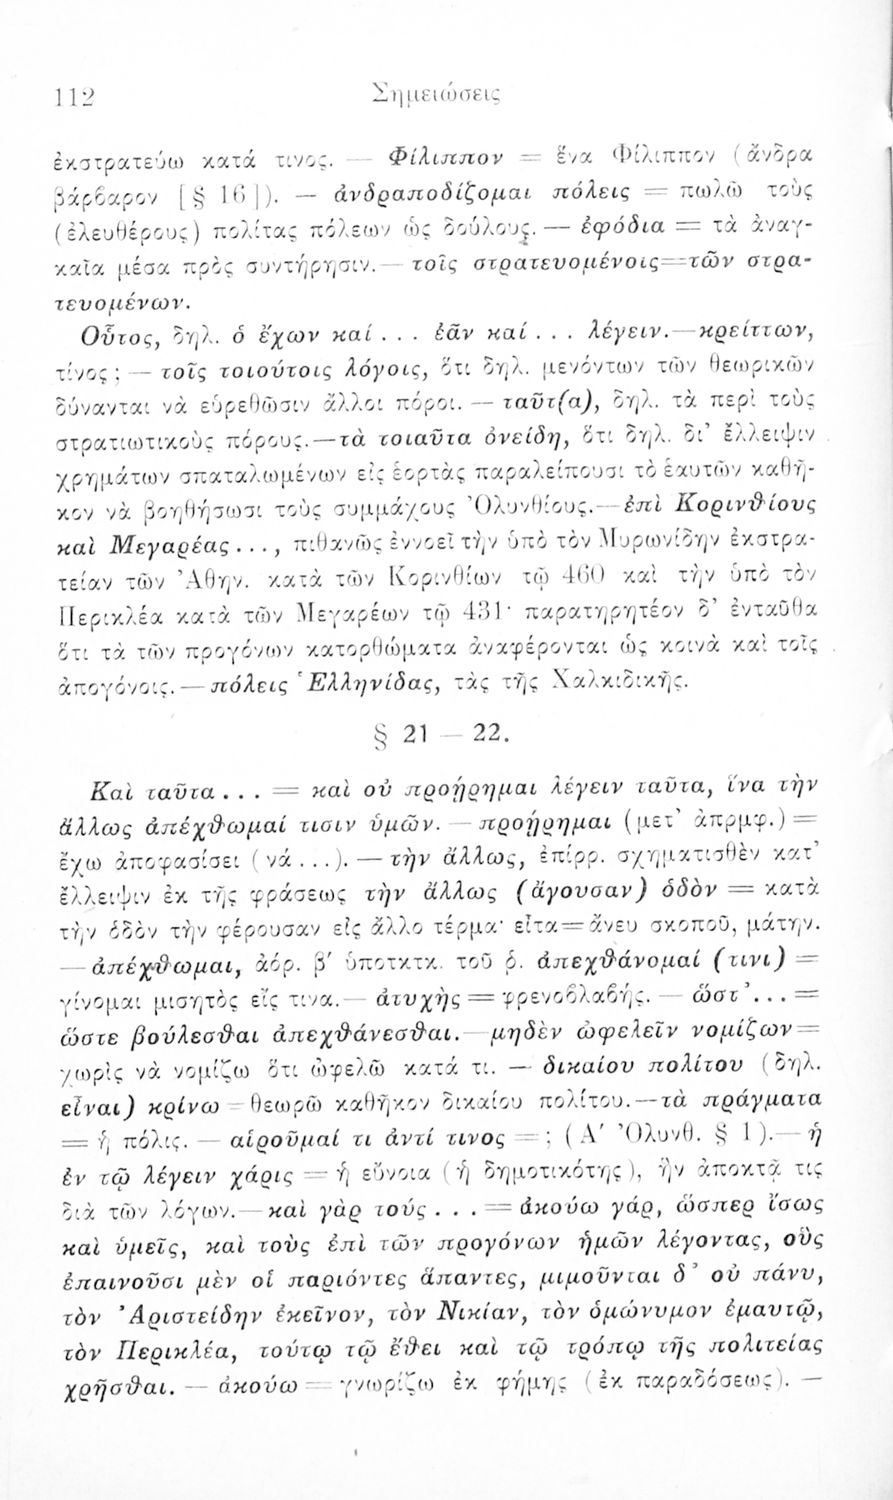 112 Σημειώσεις
ἐκστρατεύω κατά τινος. — Φίλιππον = ἕνα Φίλιππον (ἄνδρα
βάρβαρον [§ 16]). — ἀνδραποδίζομαι πόλεις = πωλῶ τοὺς
(ἐλευθέρους) πολίτας πόλεων ὡς δούλους. — ἐφόδια = τὰ ἀναγ-
καῖα μέσα πρὸς συντήρησιν. — τοῖς στρατευομένοις = τῶν στρα-
τευομένων.
Οὗτος, δηλ. ὁ ἔχων καί . . . ἐᾶν καί . . . λέγειν. — κρείττων,
τίνος; — τοῖς τοιούτοις λόγοις, ὅτι δηλ. μενόντων τῶν θεωρικῶν
δύνανται νὰ εὑρεθῶσιν ἄλλοι πόροι. — ταῦτ(α), δηλ. τὰ περὶ τοὺς
στρατιωτικοὺς πόρους. — τὰ τοιαῦτα ὀνείδη, ὅτι δηλ. δι' ἔλλειψιν
χρημάτων σπαταλωμένων εἰς ἑορτὰς παραλείπουσι τὸ ἑαυτῶν καθῆ-
κον νὰ βοηθήσωσι τοὺς συμμάχους Ὀλυνθίους. — ἐπὶ Κορινθίους
καὶ Μεγαρέας . . . , πιθανῶς ἐννοεῖ τὴν ὑπὸ τὸν Μυρωνίδην ἐκστρα-
τείαν τῶν Ἀθην. κατὰ τῶν Κορινθίων τῷ 460 καὶ τὴν ὑπὸ τὸν
Περικλέα κατὰ τῶν Μεγαρέων τῷ 431· παρατηρητέον δ' ἐνταῦθα
ὅτι τὰ τῶν προγόνων κατορθώματα ἀναφέρονται ὡς κοινὰ καὶ τοῖς
ἀπογόνοις. — πόλεις Ἑλληνίδας, τὰς τῆς Χαλκιδικῆς.
§ 21 — 22.
Καὶ ταῦτα . . . = καὶ οὐ προῄρημαι λέγειν ταῦτα, ἵνα τὴν
ἄλλως ἀπέχθωμαί τισιν ὑμῶν. — προῄρημαι (μετ' ἀπρμφ.) =
ἔχω ἀποφασίσει (νά . . .). — τὴν ἄλλως, ἐπίρρ. σχηματισθὲν κατ'
ἔλλειψιν ἐκ τῆς φράσεως τὴν ἄλλως (ἄγουσαν) ὁδὸν = κατὰ
τὴν ὁδὸν τὴν φέρουσαν εἰς ἄλλο τέρμα· εἶτα = ἄνευ σκοποῦ, μάτην.
— ἀπέχθωμαι, ἀόρ. β' ὑποτκτκ. τοῦ ῥ. ἀπεχθάνομαί (τινι) =
γίνομαι μισητὸς εἴς τινα. — ἀτυχὴς = φρενοβλαβής. — ὥστ' . . . =
ὥστε βούλεσθαι ἀπεχθάνεσθαι. — μηδὲν ὠφελεῖν νομίζων =
χωρὶς νὰ νομίζω ὅτι ὠφελῶ κατά τι. — δικαίου πολίτου (δηλ.
εἶναι) κρίνω = θεωρῶ καθῆκον δικαίου πολίτου. — τὰ πράγματα
= ἡ πόλις. — αἱροῦμαί τι ἀντί τινος = ; (Α' Ὀλυνθ. § 1). — ἡ
ἐν τῷ λέγειν χάρις = ἡ εὔνοια (ἡ δημοτικότης), ἣν ἀποκτᾷ τις
διὰ τῶν λόγων. — καὶ γὰρ τούς . . . = ἀκούω γάρ, ὥσπερ ἴσως
καὶ ὑμεῖς, καὶ τοὺς ἐπὶ τῶν προγόνων ἡμῶν λέγοντας, οὓς
ἐπαινοῦσι μὲν οἱ παριόντες ἅπαντες, μιμοῦνται δ' οὐ πάνυ,
τὸν Ἀριστείδην ἐκεῖνον, τὸν Νικίαν, τὸν ὁμώνυμον ἐμαυτῷ,
τὸν Περικλέα, τούτῳ τῷ ἔθει καὶ τῷ τρόπῳ τῆς πολιτείας
χρῆσθαι. — ἀκούω = γνωρίζω ἐκ φήμης (ἐκ παραδόσεως). —